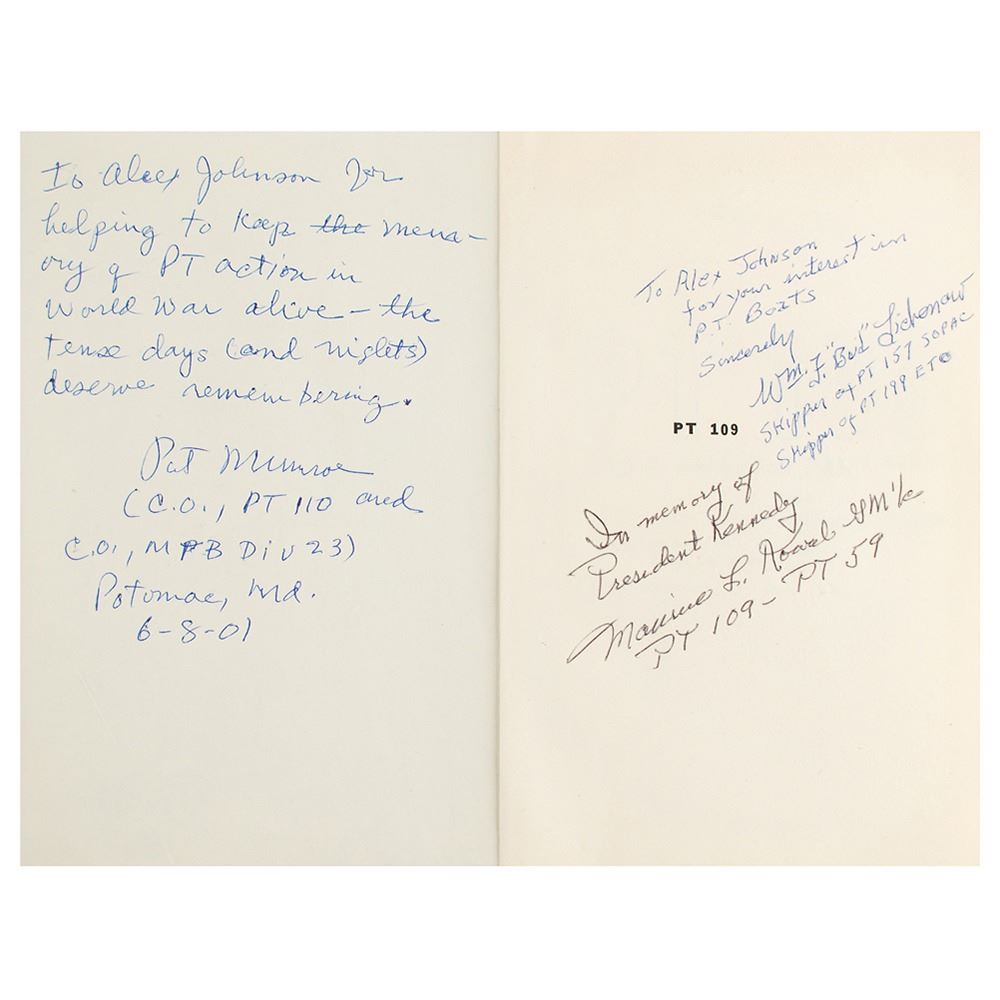 To Alex Johnson for
helping to keep the mem-
ory of PT action in
World War alive - the
tense days (and nights)
deserve remembering.
Pat Munroe
(C.O., PT 110 and
C.O., MPB Div 23)
Potomac, Md.
6-8-01
To Alex Johnson
for your interest in
P.T. Boats
Sincerely
Wm. F. "Bud" Liebenow
Skipper of PT 157 SOPAC
Skipper of PT 199 ETO
PT 109
In memory of
President Kennedy
Maurice L. Kowal GM1/c
PT 109 - PT 59